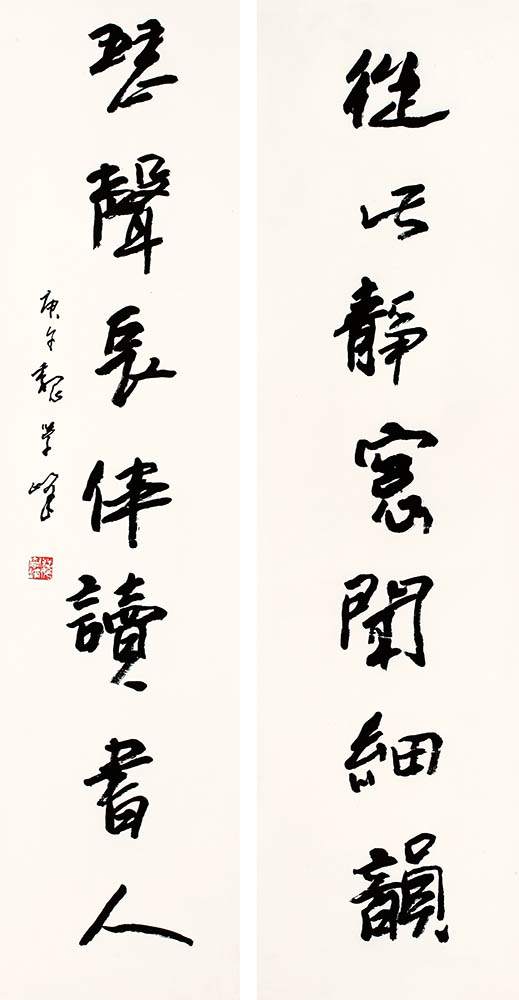 從此靜窗聞細韻
琴聲長伴讀書人
庚午魏学峰